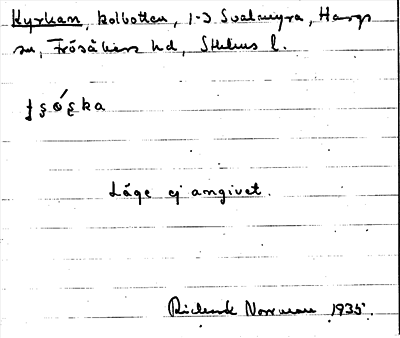 Kyrkan, kolbotten, 1-3 Svalmyra, Hargs
sn, Frösåkers hd, Sthlms l.
Läge ej angivet.
Rickard Norrman 1935.